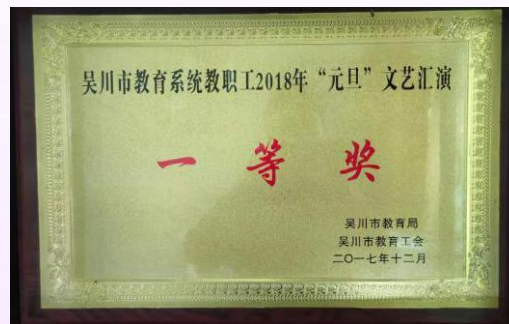 吴川市教育系统教职工2018年“元旦”文艺汇演
一等奖
吴川市教育局
吴川市教育工会
二〇一七年十二月